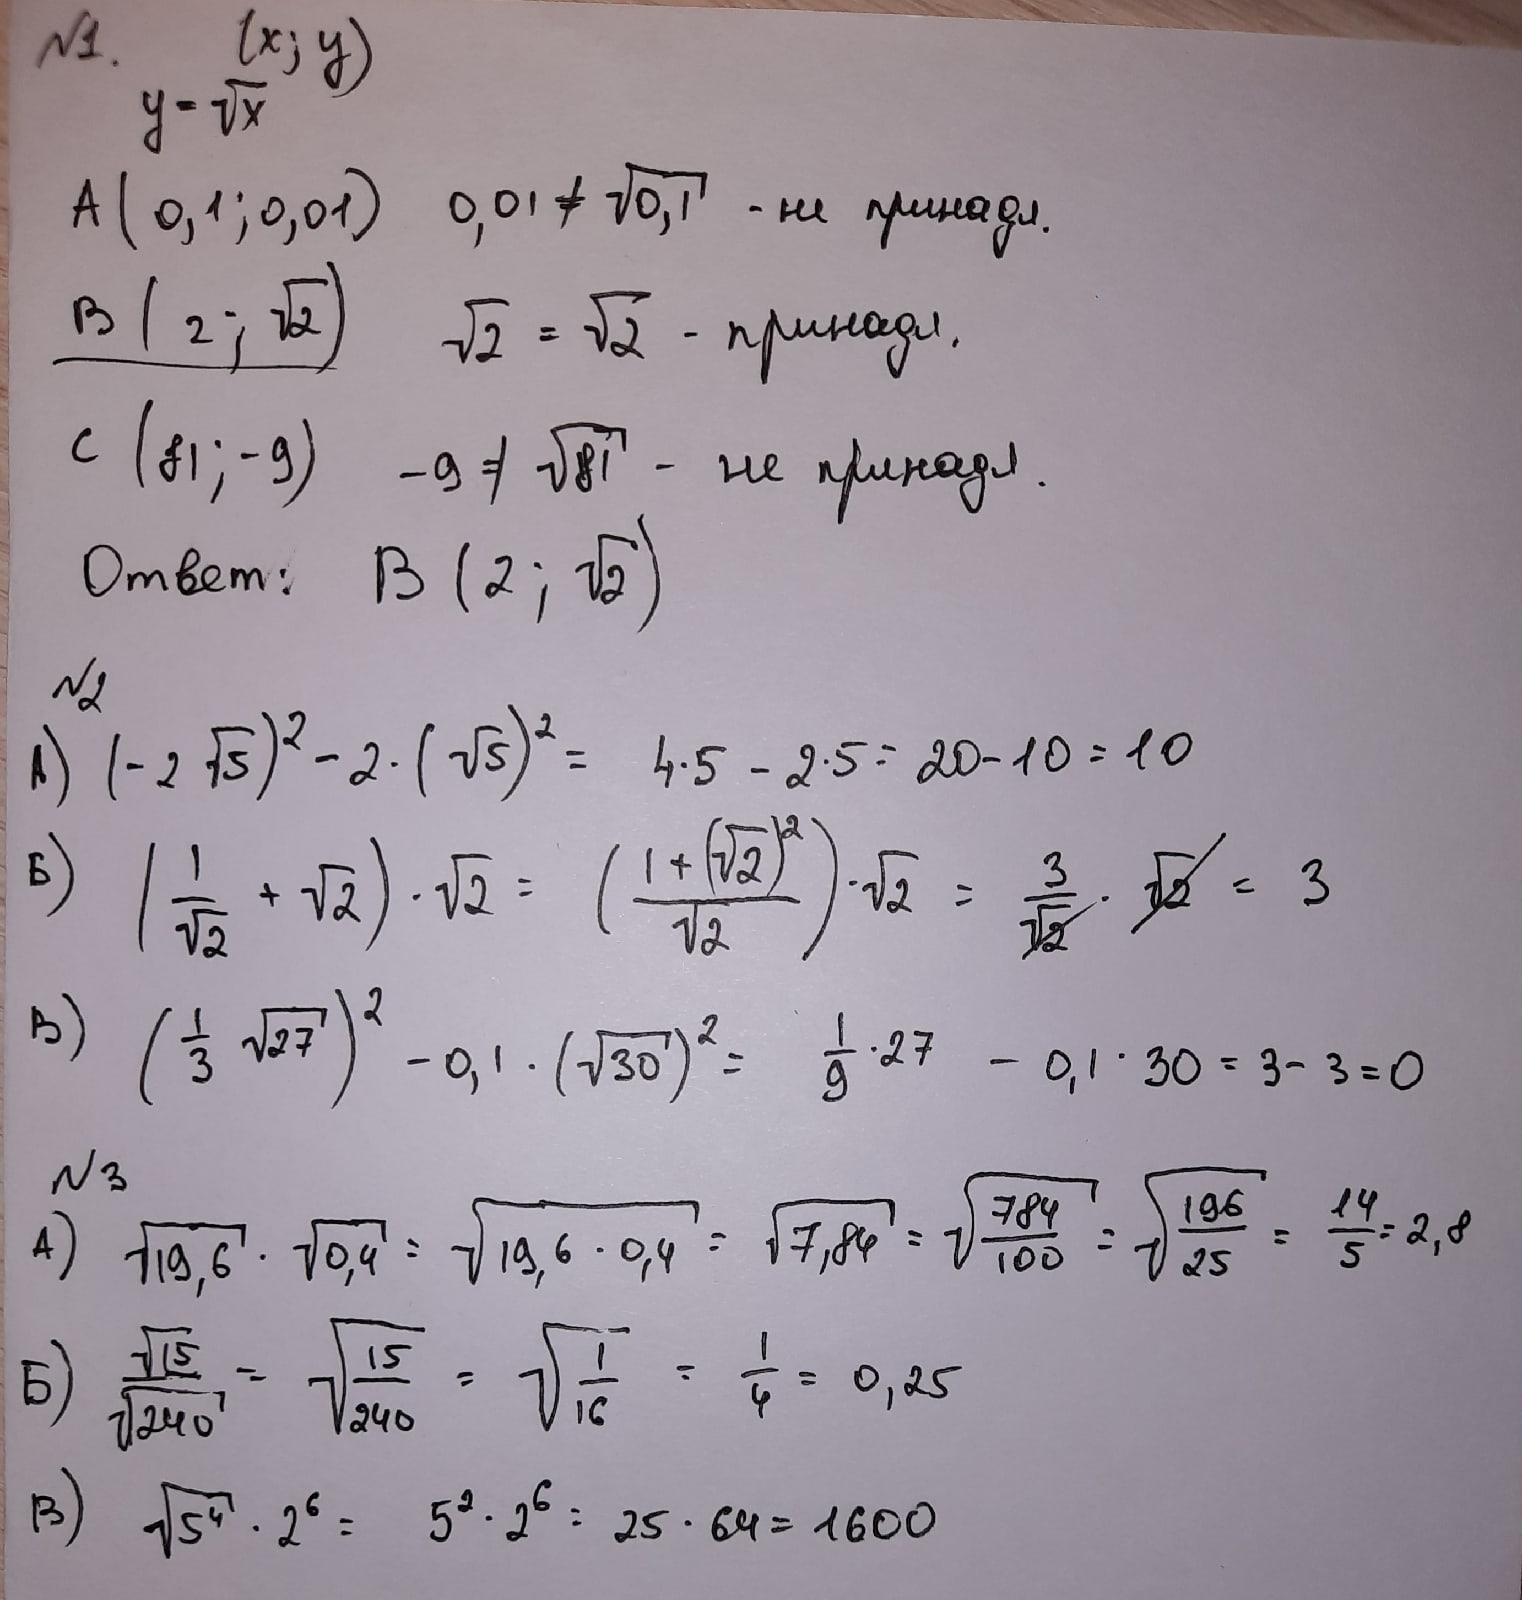 №1. (x; y)
y = √x
A(0,1; 0,01) 0,01 ≠ √0,1 - не принадл.
B(2; √2) √2 = √2 - принадл.
C(81; -9) -9 ≠ √81 - не принадл.
Ответ: B(2; √2)
№2
А) (-2√5)² - 2·(√5)² = 4·5 - 2·5 = 20 - 10 = 10
Б) (1/√2 + √2)·√2 = ((1 + (√2)²)/√2)·√2 = 3/√2 · √2 = 3
В) (1/3 √27)² - 0,1·(√30)² = 1/9·27 - 0,1·30 = 3 - 3 = 0
№3
А) √19,6 · √0,4 = √(19,6·0,4) = √7,84 = √(784/100) = √(196/25) = 14/5 = 2,8
Б) √15/√240 = √(15/240) = √(1/16) = 1/4 = 0,25
В) √5⁴ · 2⁶ = 5² · 2⁶ = 25 · 64 = 1600